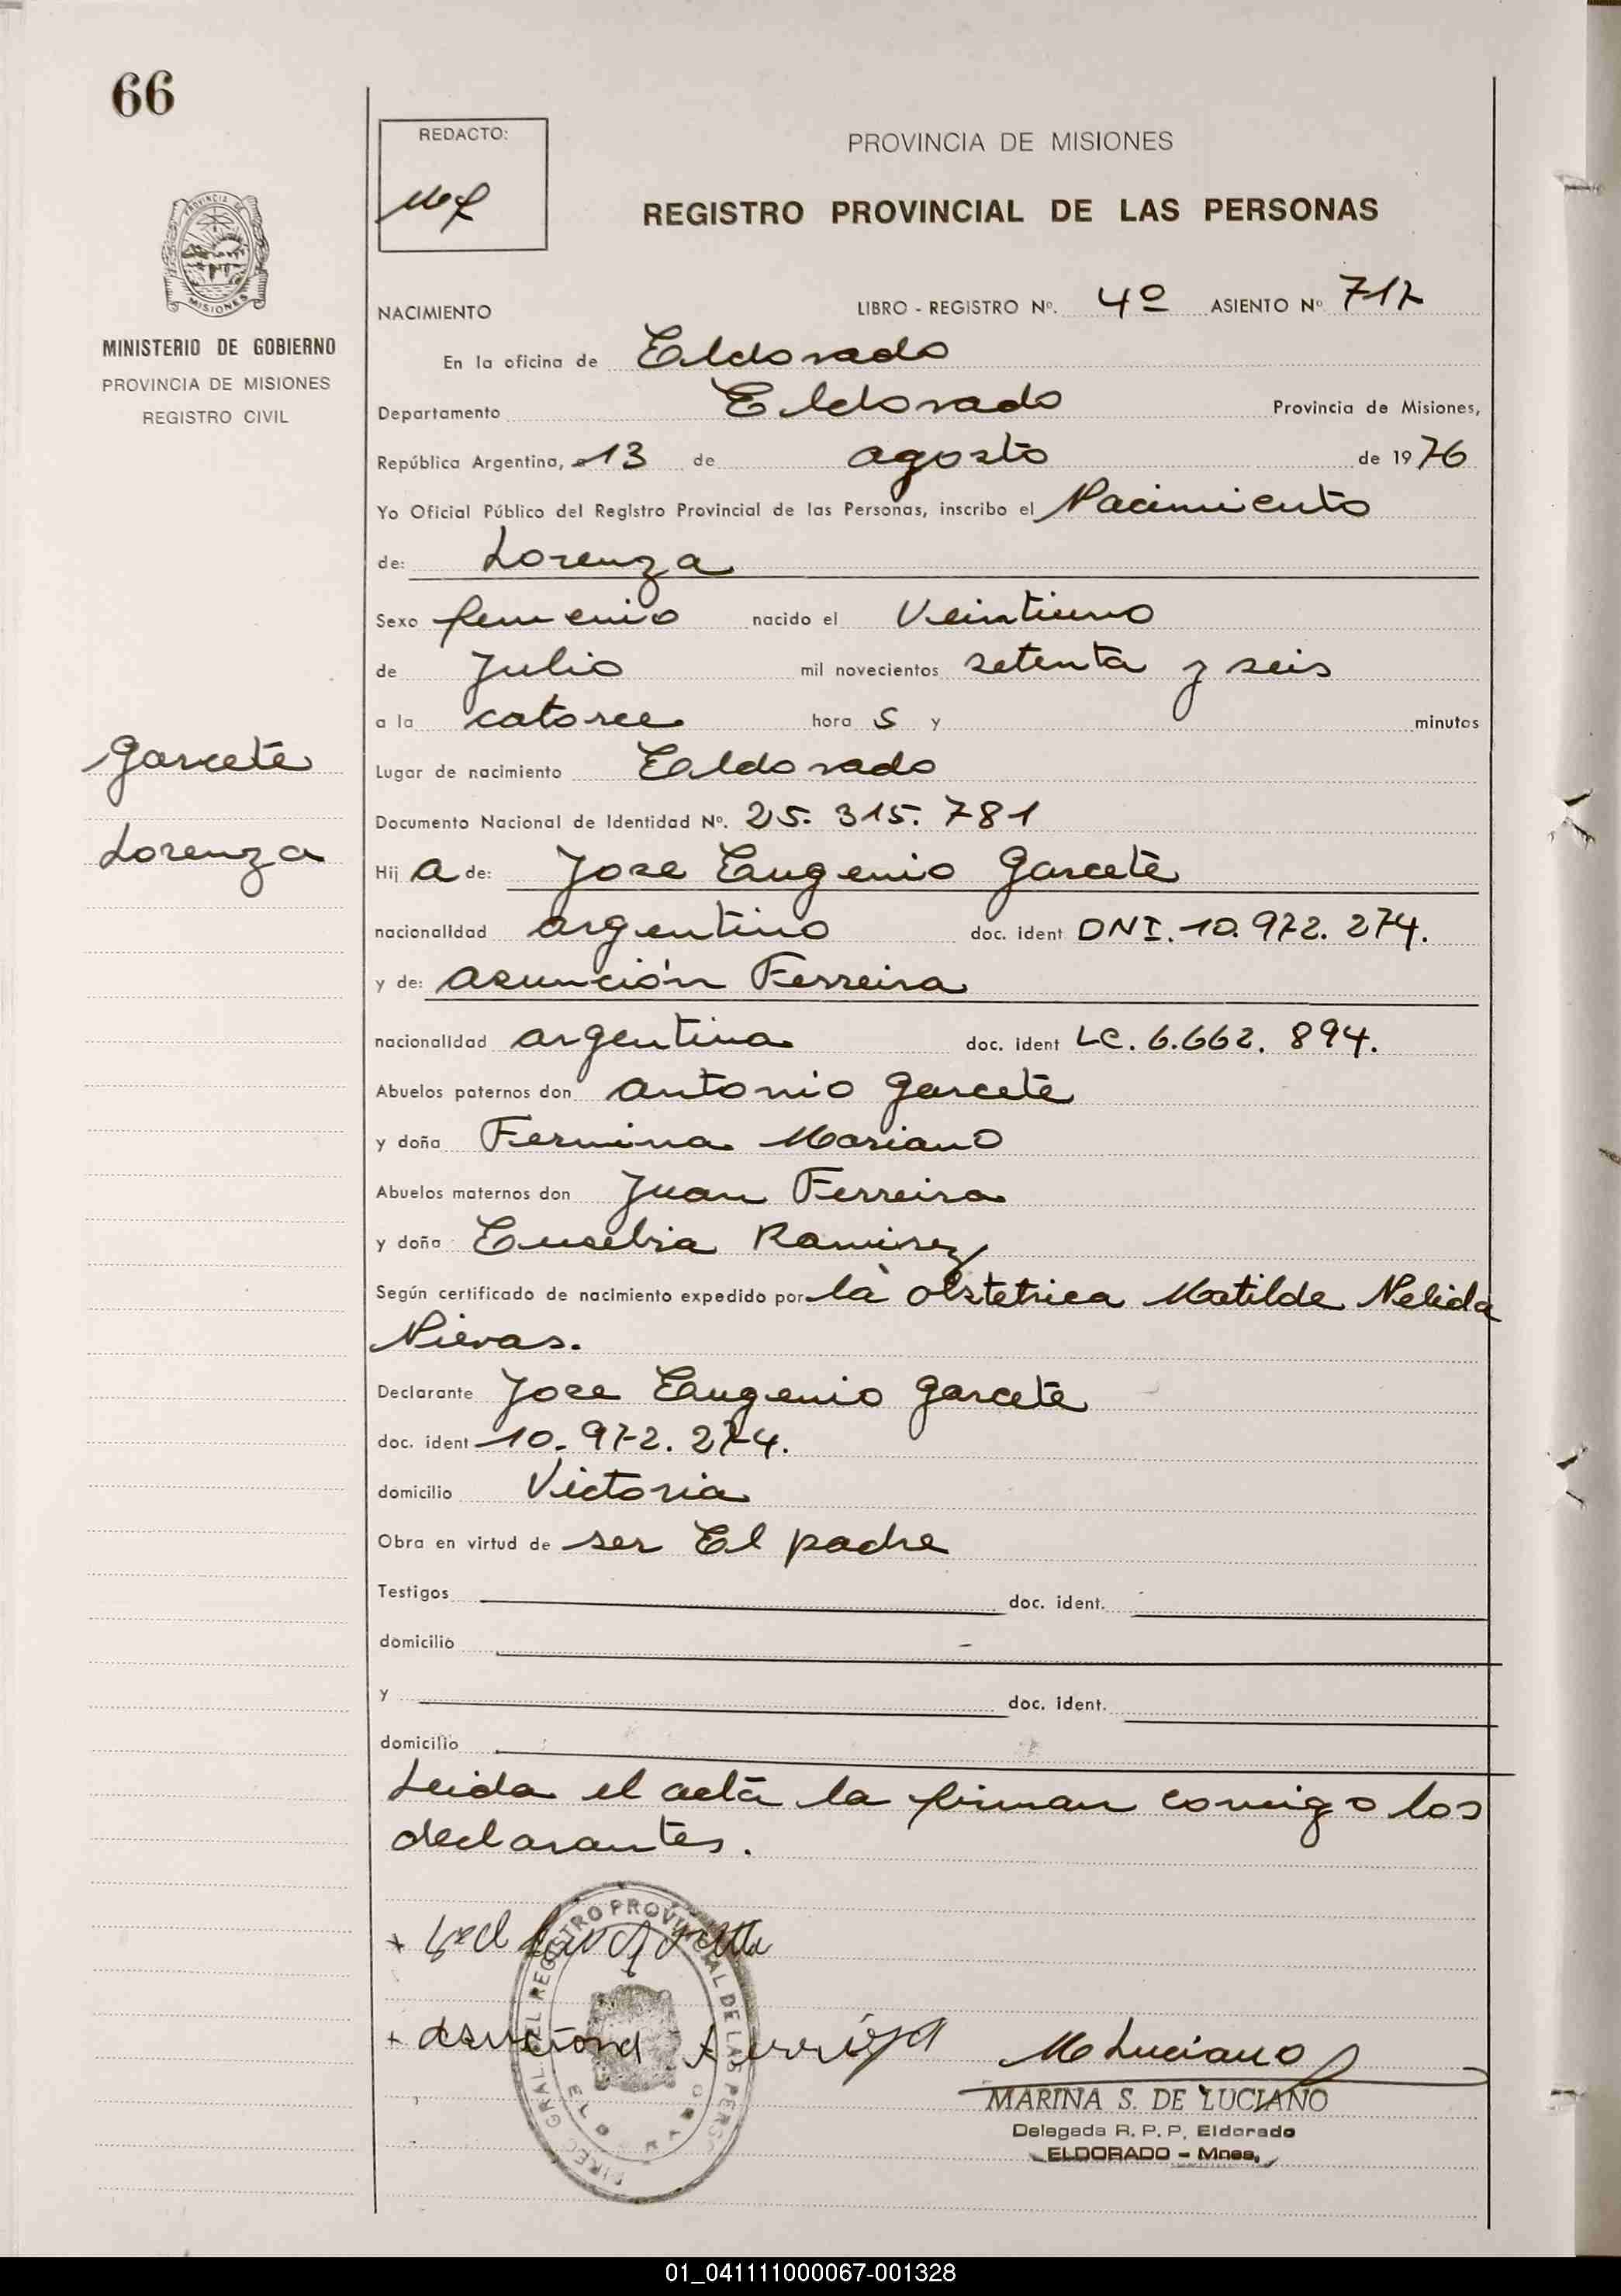 66
REDACTO:
PROVINCIA DE MISIONES
REGISTRO PROVINCIAL DE LAS PERSONAS
PROVINCIA DE
MISIONES
MINISTERIO DE GOBIERNO
PROVINCIA DE MISIONES
REGISTRO CIVIL
NACIMIENTO LIBRO - REGISTRO Nº. 4º ASIENTO Nº 717
En la oficina de Eldorado
Departamento Eldorado Provincia de Misiones,
República Argentina, a 13 de agosto de 1976
Yo Oficial Público del Registro Provincial de las Personas, inscribo el Nacimiento
de: Lorenza
Sexo femenio nacido el Veintiuno
de Julio mil novecientos setenta y seis
a la catorce hora s y minutos
Garcete
Lugar de nacimiento Eldorado
Documento Nacional de Identidad Nº. 25.315.781
Lorenza
Hij a de: Jose Eugenio Garcete
nacionalidad argentino doc. ident DNI. 10.972.274.
y de: Asunción Ferreira
nacionalidad argentina doc. ident LC. 6.662.894.
Abuelos paternos don Antonio Garcete
y doña Fermina Mariano
Abuelos maternos don Juan Ferreira
y doña Eusebia Ramirez
Según certificado de nacimiento expedido por la obstetrica Matilde Nelida
Nievas.
Declarante Jose Eugenio Garcete
doc. ident 10.972.274.
domicilio Victoria
Obra en virtud de ser El padre
Testigos doc. ident.
domicilio
y doc. ident.
domicilio
Leida el acta la firman comigo los
declarantes.
DIREC. GRAL. DEL REGISTRO PROVINCIAL DE LAS PERS
M Luciano
MARINA S. DE LUCIANO
Delegada R. P. P. Eldorado
ELDORADO - Mnes.
01_041111000067-001328